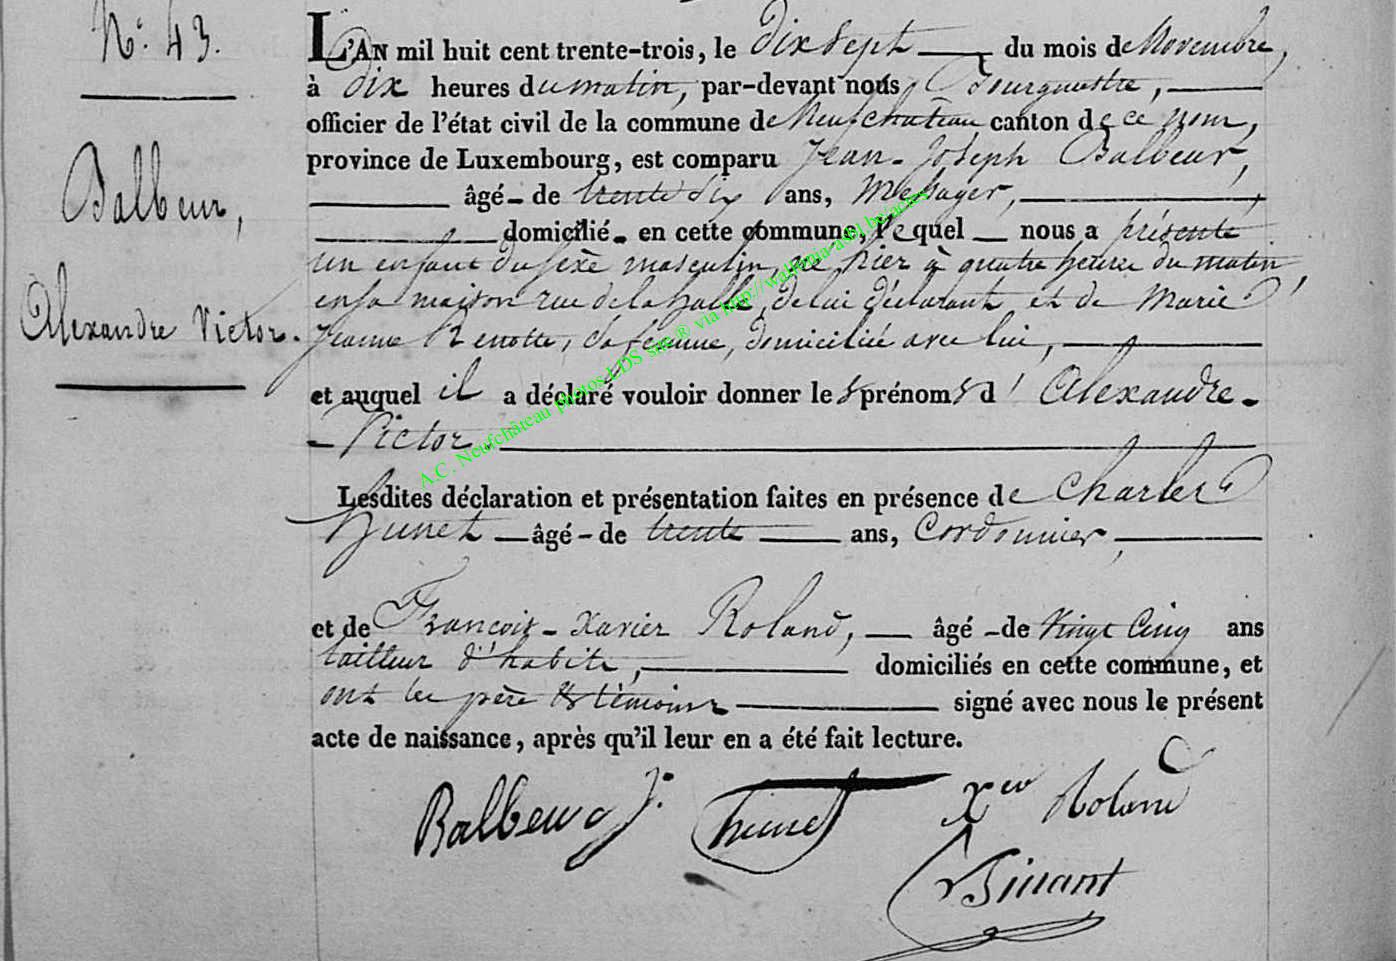 N.° 43.
Balbeur,
Alexandre Victor.
L'AN mil huit cent trente-trois, le dix sept du mois de Novembre,
à dix heures du matin, par-devant nous Bourguestre,
officier de l'état civil de la commune de Neufchateau canton de ce nom,
province de Luxembourg, est comparu Jean-Joseph Balbeur,
âgé de trente six ans, Messager,
domicilié en cette commune, lequel nous a présenté
un enfant du sexe masculin, né hier à quatre heures du matin,
en sa maison rue de la halle, de lui déclarant et de Marie
Jeanne Renotte, sa femme, domiciliée avec lui,
et auquel il a déclaré vouloir donner les prénoms d'Alexandre-
-Victor.
Lesdites déclaration et présentation faites en présence de Charles
Hunet âgé de trente ans, Cordonnier,
et de François-Xavier Roland, âgé de vingt cinq ans
tailleur d'habits, domiciliés en cette commune, et
ont les père & témoins signé avec nous le présent
acte de naissance, après qu'il leur en a été fait lecture.
Balbeur J. hunet Xer Roland
A.C. Neufchâteau photos LDS site® via http://wallonia-asbl.be/actes